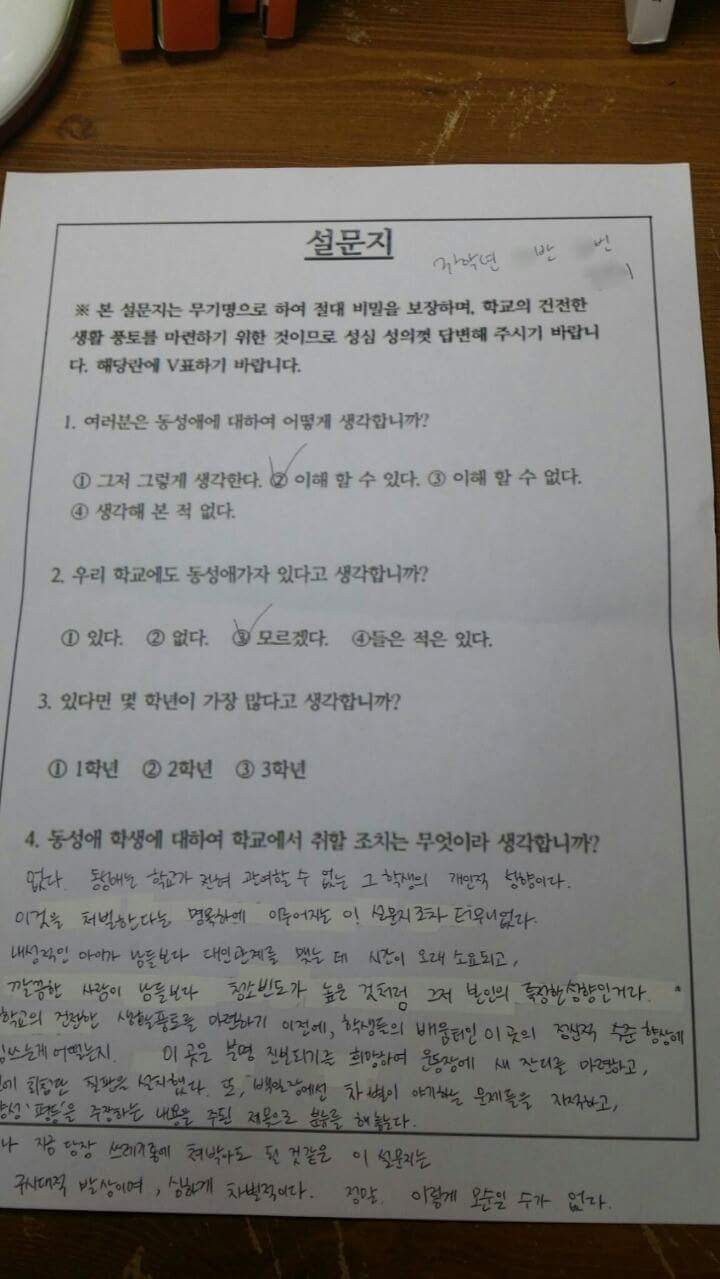 설문지
학년 반 번
※ 본 설문지는 무기명으로 하여 절대 비밀을 보장하며, 학교의 건전한
생활 풍토를 마련하기 위한 것이므로 성심 성의껏 답변해 주시기 바랍니
다. 해당란에 V표하기 바랍니다.
1. 여러분은 동성애에 대하여 어떻게 생각합니까?
① 그저 그렇게 생각한다. ② 이해 할 수 있다. ③ 이해 할 수 없다.
④ 생각해 본 적 없다.
2. 우리 학교에도 동성애가자 있다고 생각합니까?
① 있다. ② 없다. ③ 모르겠다. ④들은 적은 있다.
3. 있다면 몇 학년이 가장 많다고 생각합니까?
① 1학년 ② 2학년 ③ 3학년
4. 동성애 학생에 대하여 학교에서 취할 조치는 무엇이라 생각합니까?
없다. 동성애는 학교가 전혀 관여할 수 없는 그 학생의 개인적 성향이다.
이것을 처벌한다는 명목하에 이루어지는 이 설문지조차 터무니없다.
내성적인 아이가 남들보다 대인관계를 맺는 데 시간이 오래 소요되고,
깔끔한 사람이 남들보다 청소빈도가 높은 것처럼 그저 본인의 특정한 성향인거라.
학교의 건전한 생활풍토를 마련하기 이전에, 학생들의 배움터인 이 곳의 정신적 수준 향상에
힘쓰는게 어떨는지. 이 곳은 분명 진보되기를 희망하여 운동장에 새 잔디를 마련하고,
에 회전판 칠판을 설치했다. 또, 백일장에선 차별이 야기하는 문제들을 지적하고,
양성'평등'을 주장하는 내용을 주된 제목으로 분류를 해놓는다.
나 지금 당장 쓰레기통에 쳐박아도 될 것같은 이 설문지는
구시대적 발상이며, 심하게 차별적이다. 정말. 이렇게 모순일 수가 없다.